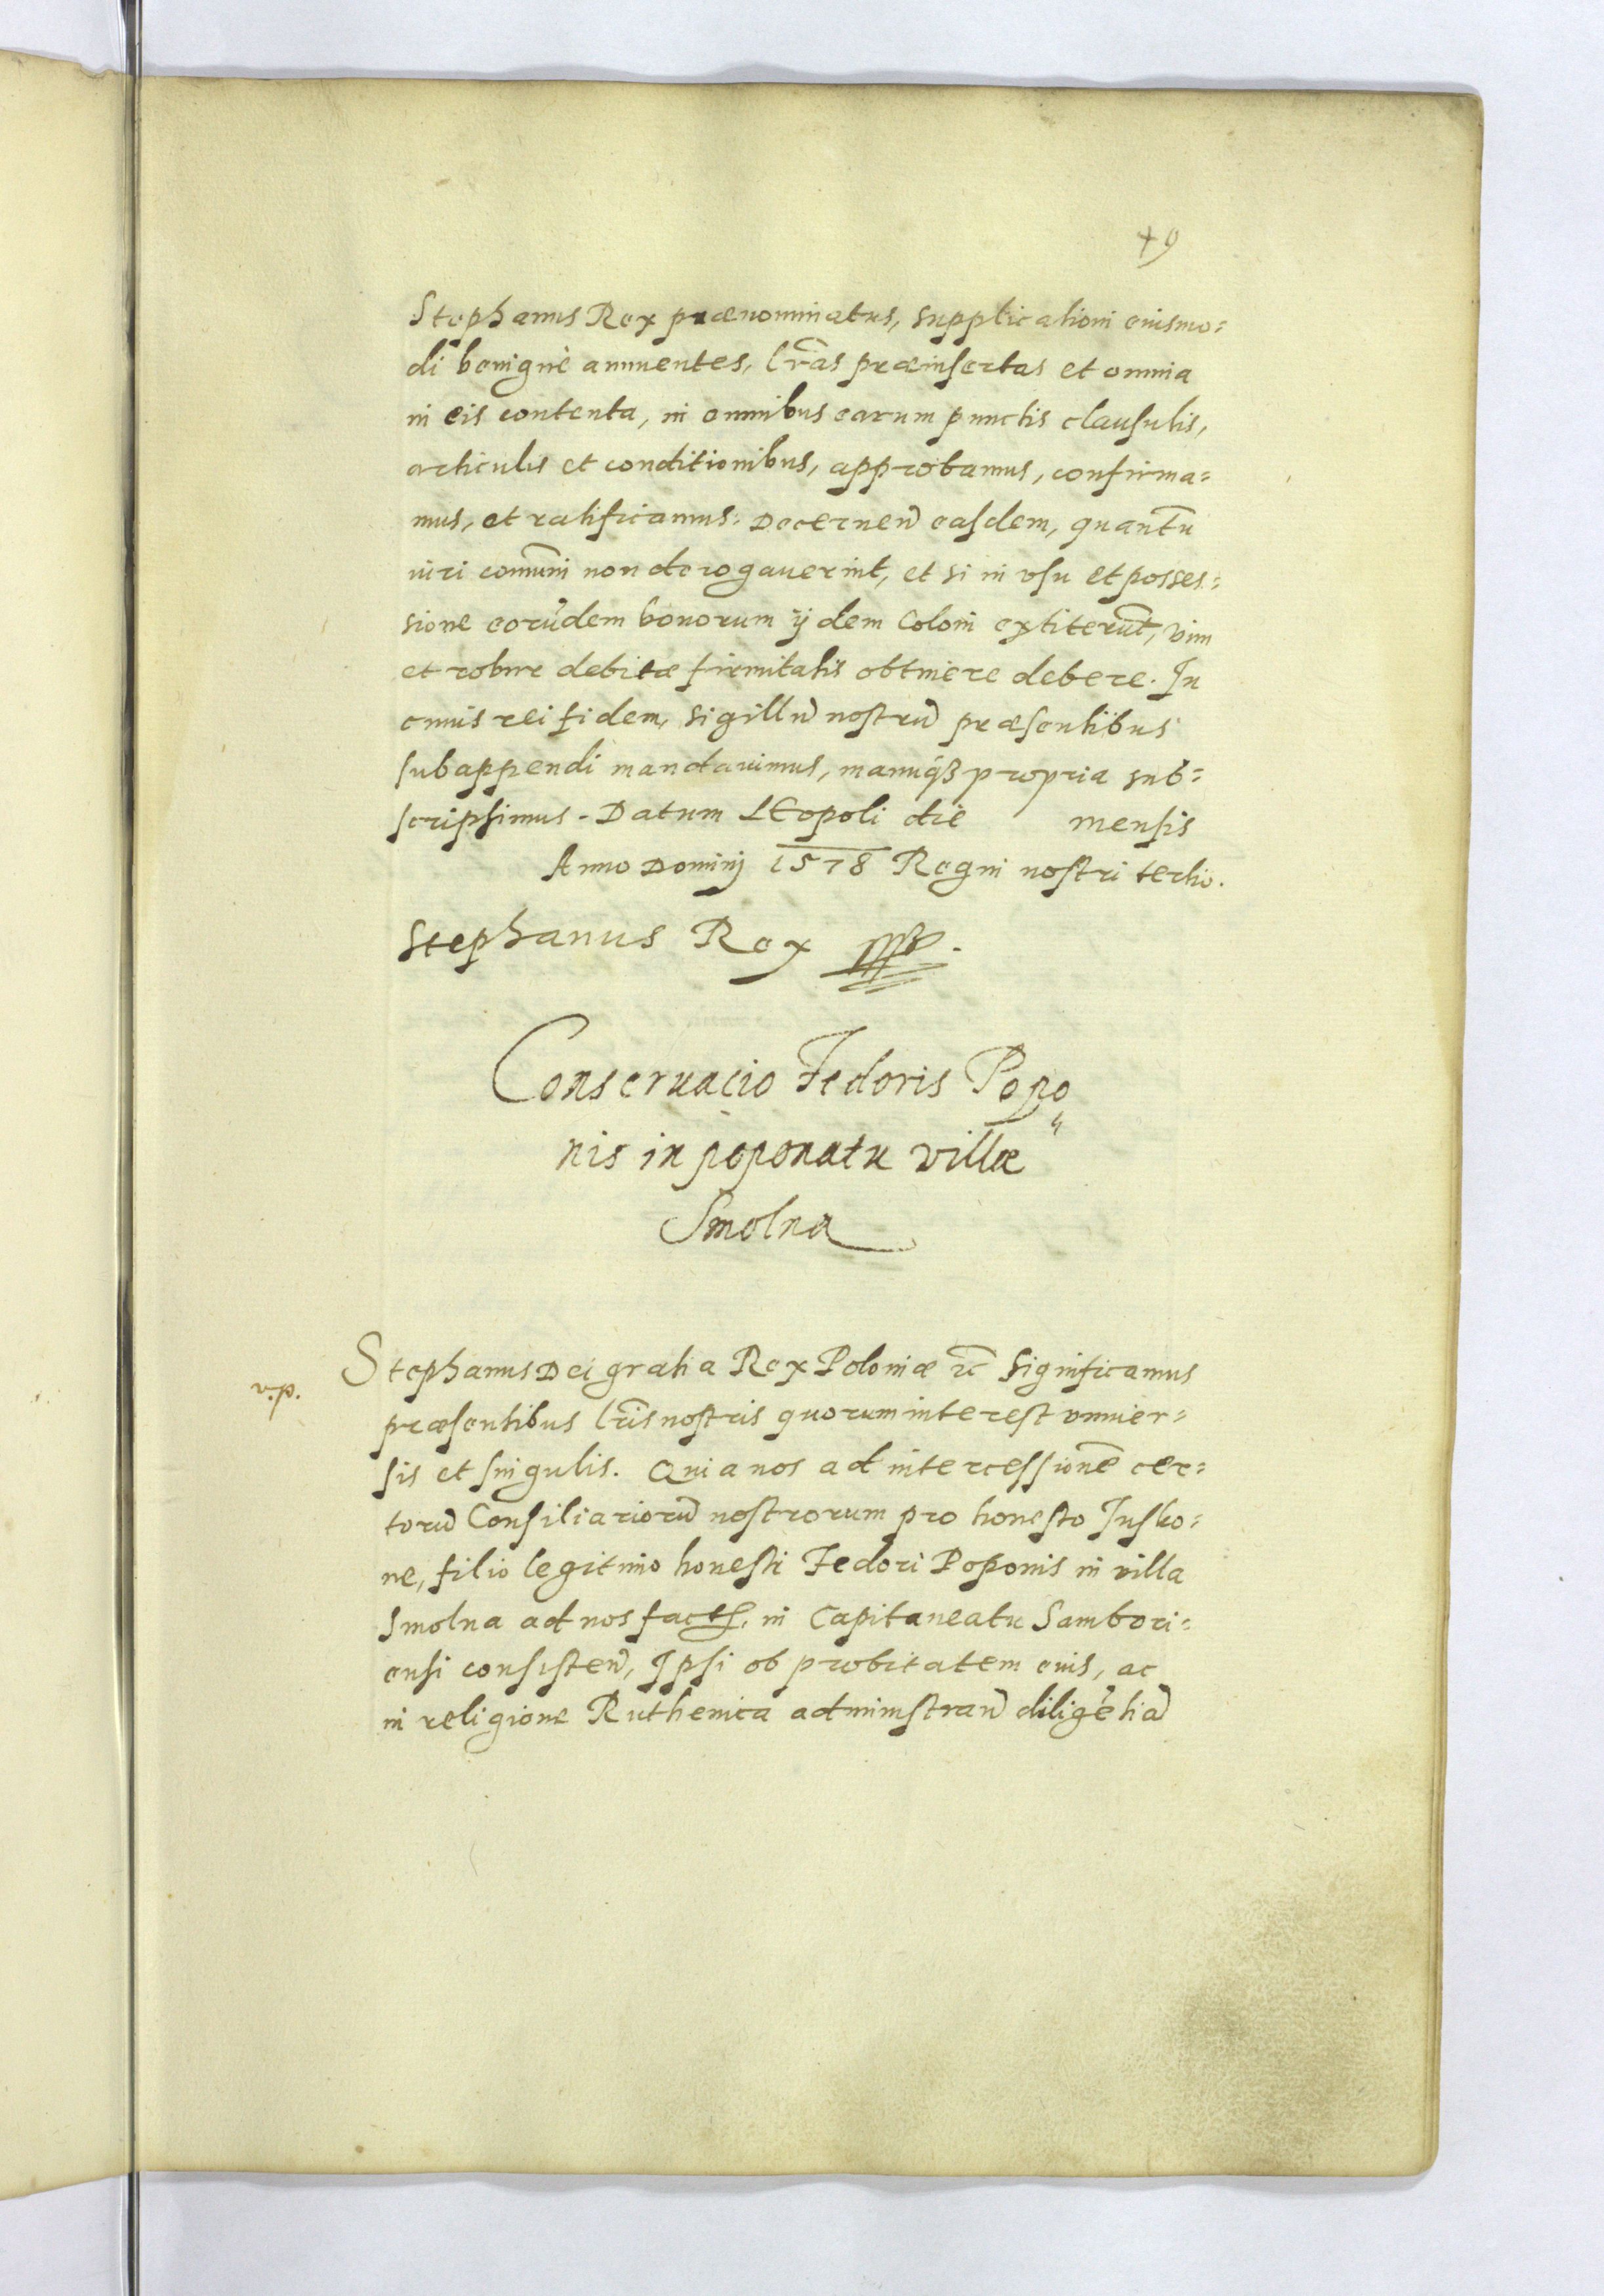 49
Stephanus Rex prænominatus, supplicationi eiusmo=
di benignè annuentes, lr̃as præinsertas et omnia
in eis contenta, in omnibus earum punctis clausulis,
articulis et conditionibus, approbamus, confirma=
mus, et ratificamus: Decernen̄ easdem, quantū
iuri com̄uni non derogauerint, et si in vsu et posses=
sione eorūdem bonorum ijdem Coloni extiterūt, vim
et robur debitæ firmitatis obtinere debere. In
cuius rei fidem, sigillū nostrū præsentibus
subappendi mandauimus, manuq́ȝ propria sub=
scripsimus. Datum LEopoli die mensis
Anno Dominj 1578 Regni nostri tertio.
Stephanus Rex
Conseruacio Fedoris Popo„
nis in poponatu villæ
Smolna
v.p.
Stephanus Dei gratia Rex Poloniæ ꝛc̄ Significamus
præsentibus lr̃is nostris quorum interest vniuer=
sis et singulis. Quia nos ad intercessionē cer=
torū Consiliariorū nostrorum pro honesto Jusko=
ne, filio legitimo honesti Fedori Poponis in villa
Smolna ad nos fact, in Capitaneatu Sambori=
ensi consisten̄, Ipsi ob probitatem eius, ac
in religione Ruthenica administran̄ diligētiā